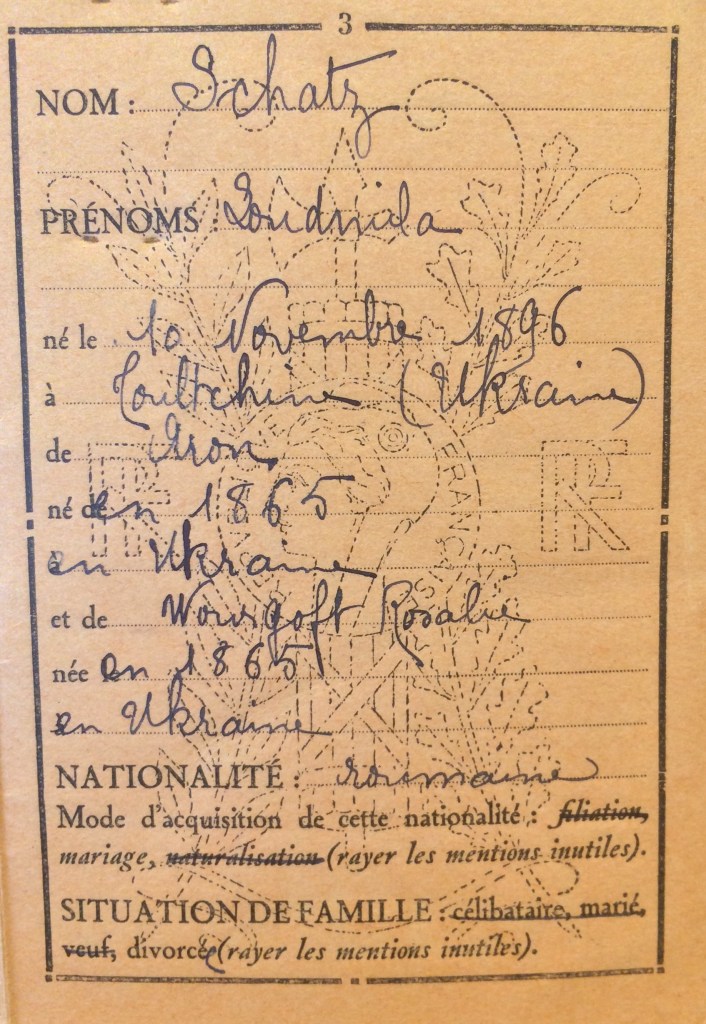 3
NOM : Schatz
PRÉNOMS : Loudmila
né le 10 Novembre 1896
à Toultchine (Ukraine)
de Aron
né de en 1865
à en Ukraine
et de Wousgoft Rosalie
née en 1865
en Ukraine
NATIONALITÉ : roumaine
Mode d'acquisition de cette nationalité : filiation,
mariage, naturalisation (rayer les mentions inutiles).
SITUATION DE FAMILLE : célibataire, marié,
veuf, divorcée (rayer les mentions inutiles).
RF
FRANÇAIS
RF